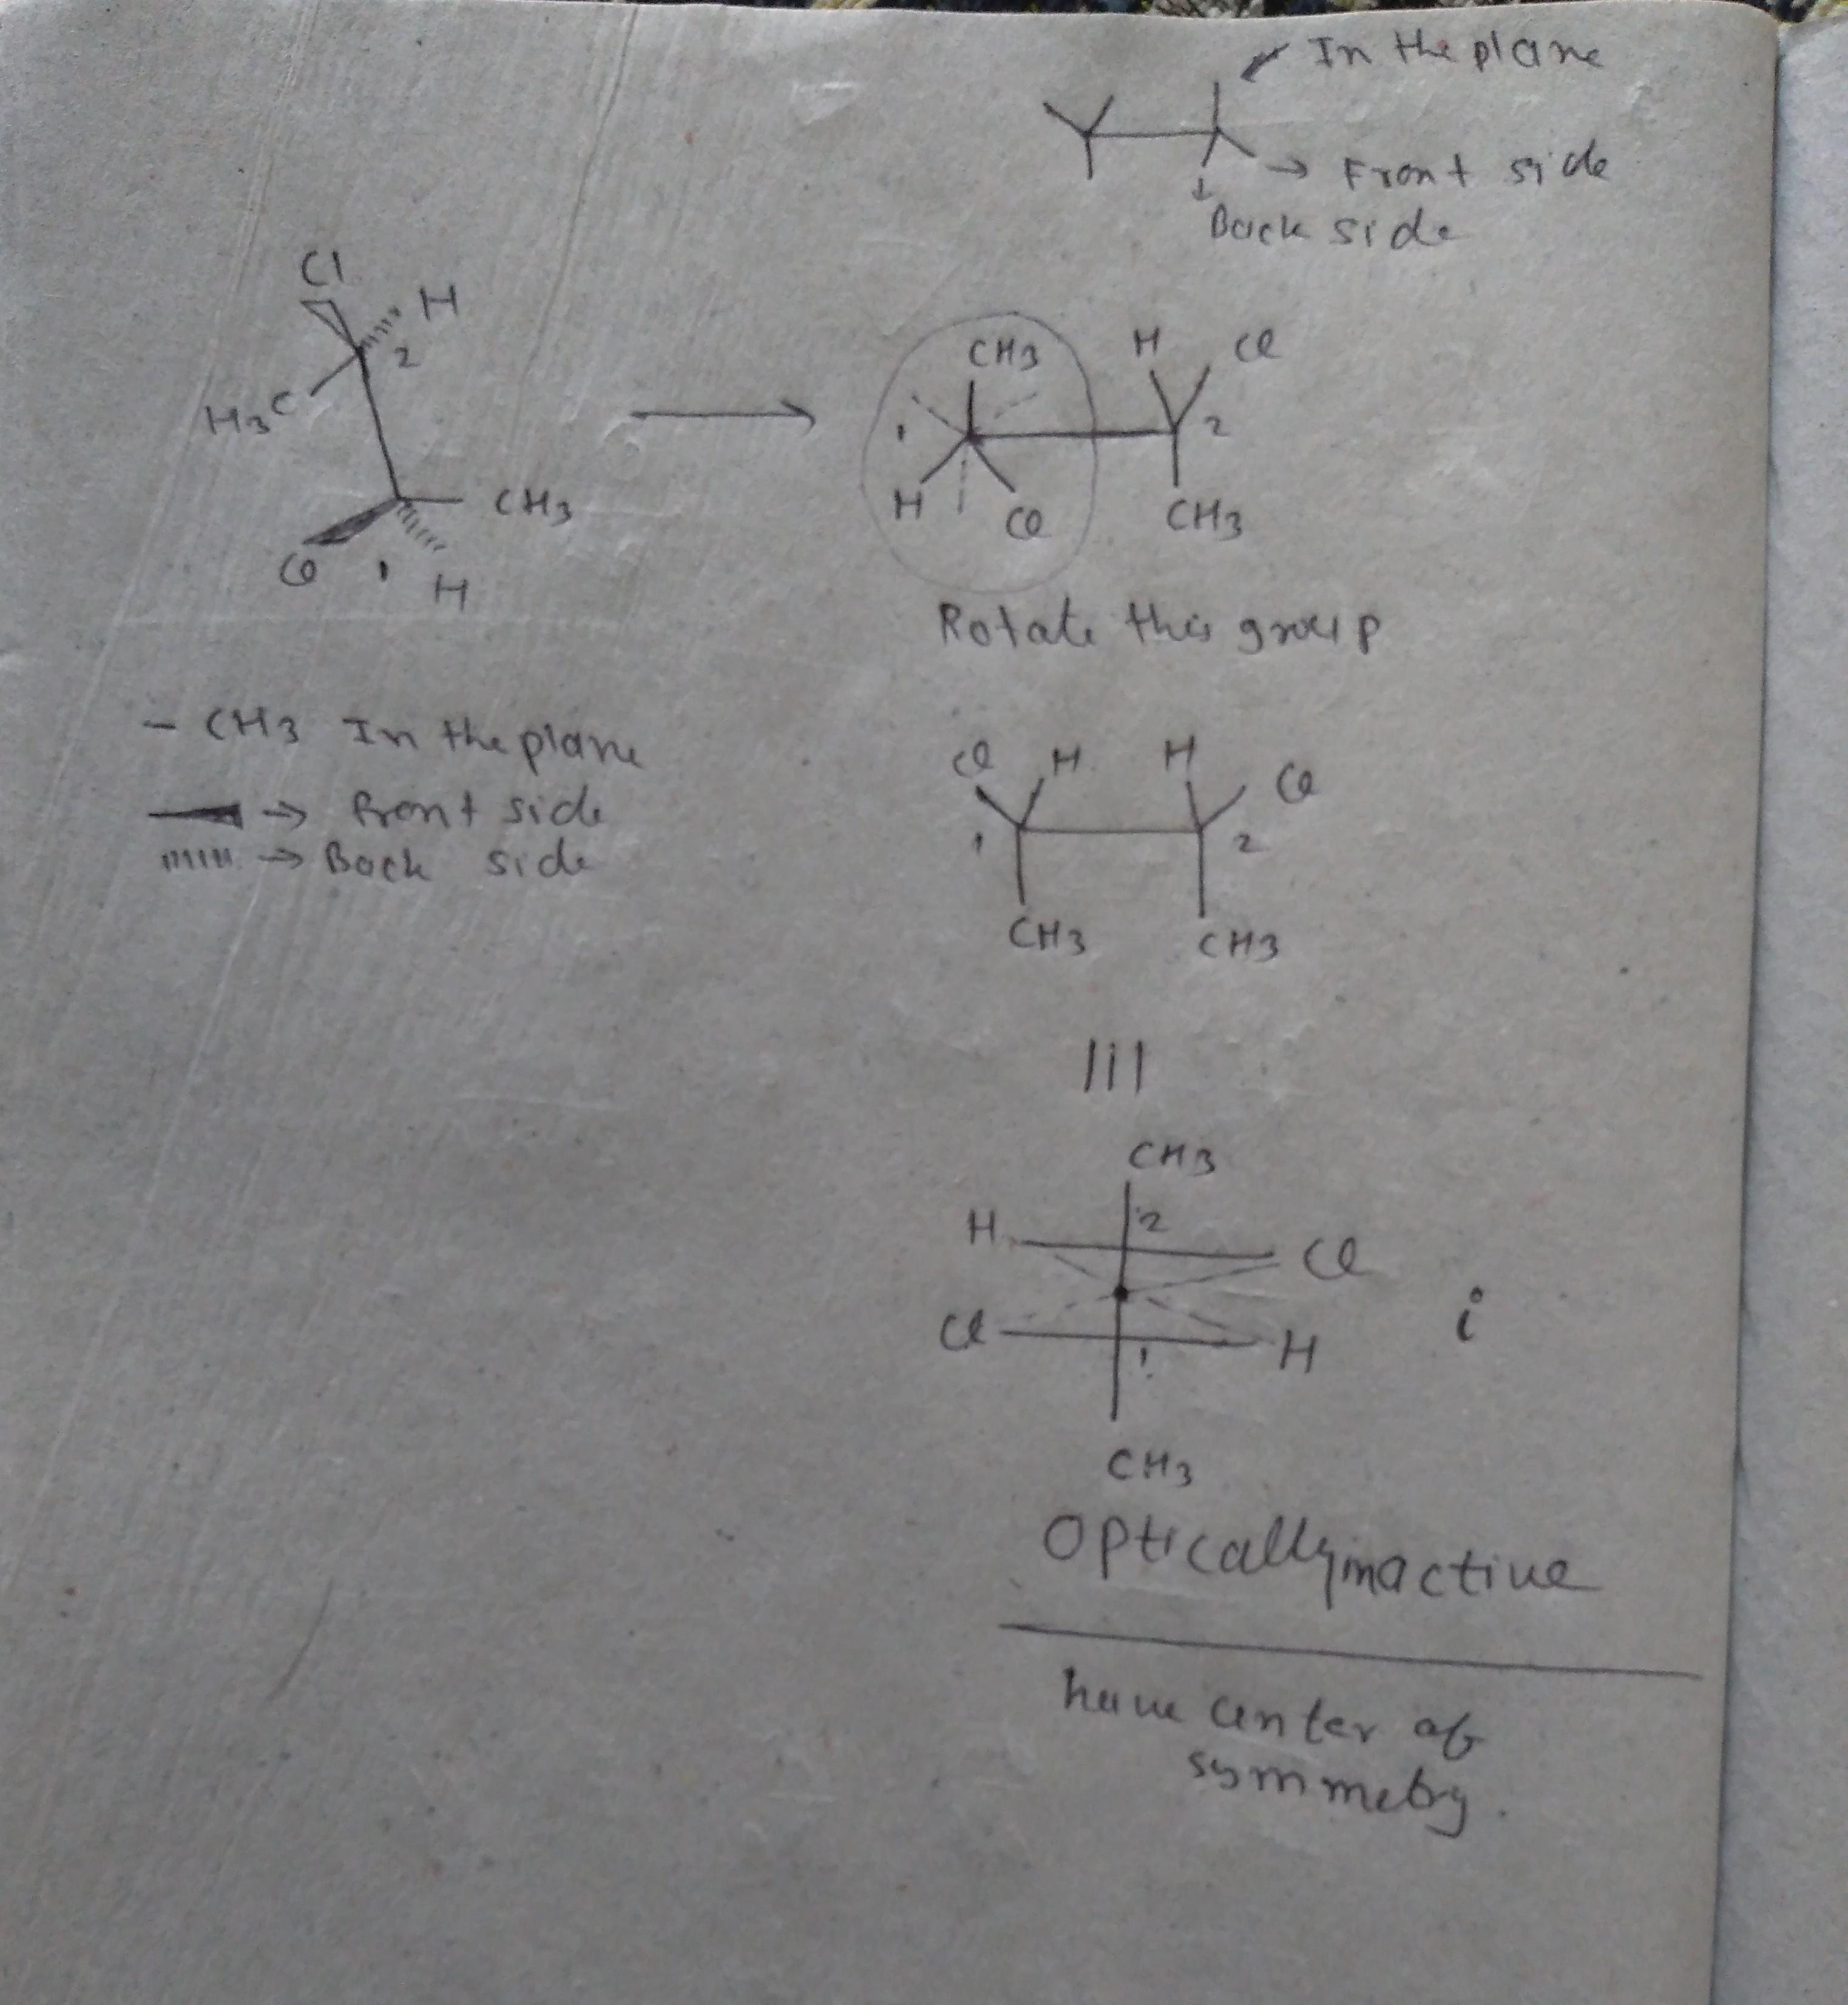 In the plane
→ Front side
↓
Back side
Cl
H
2
H3C
CH3
Cl 1 H
CH3 H Cl
1 2
H Cl CH3
Rotate this group
- CH3 In the plane
→ Front side
→ Back side
Cl H H Cl
1 2
CH3 CH3
CH3
2
H Cl
Cl H i
1
CH3
Optically inactive
have center of
symmetry.